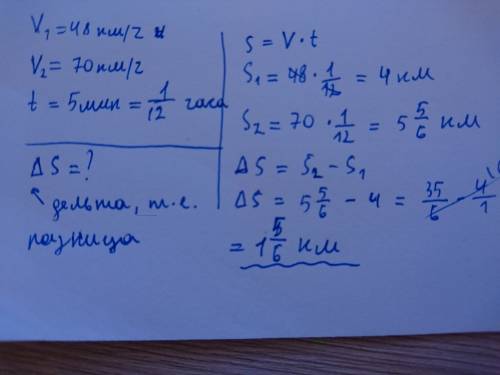 V₁ = 48 км/ч
V₂ = 70 км/ч
t = 5 мин = 1/12 часа
ΔS = ?
дельта, т.е.
разница
S = V · t
S₁ = 48 · 1/12 = 4 км
S₂ = 70 · 1/12 = 5 5/6 км
ΔS = S₂ - S₁
ΔS = 5 5/6 - 4 = 35/6 - 4/1
= 1 5/6 км